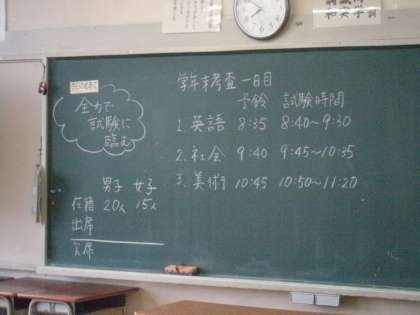 全力で
試験に
臨む
学年末考査 一日目
予鈴 試験時間
1. 英語 8:35 8:40~9:30
2. 社会 9:40 9:45~10:35
3. 美術 10:45 10:50~11:20
男子 女子
在籍 20人 15人
出席
欠席